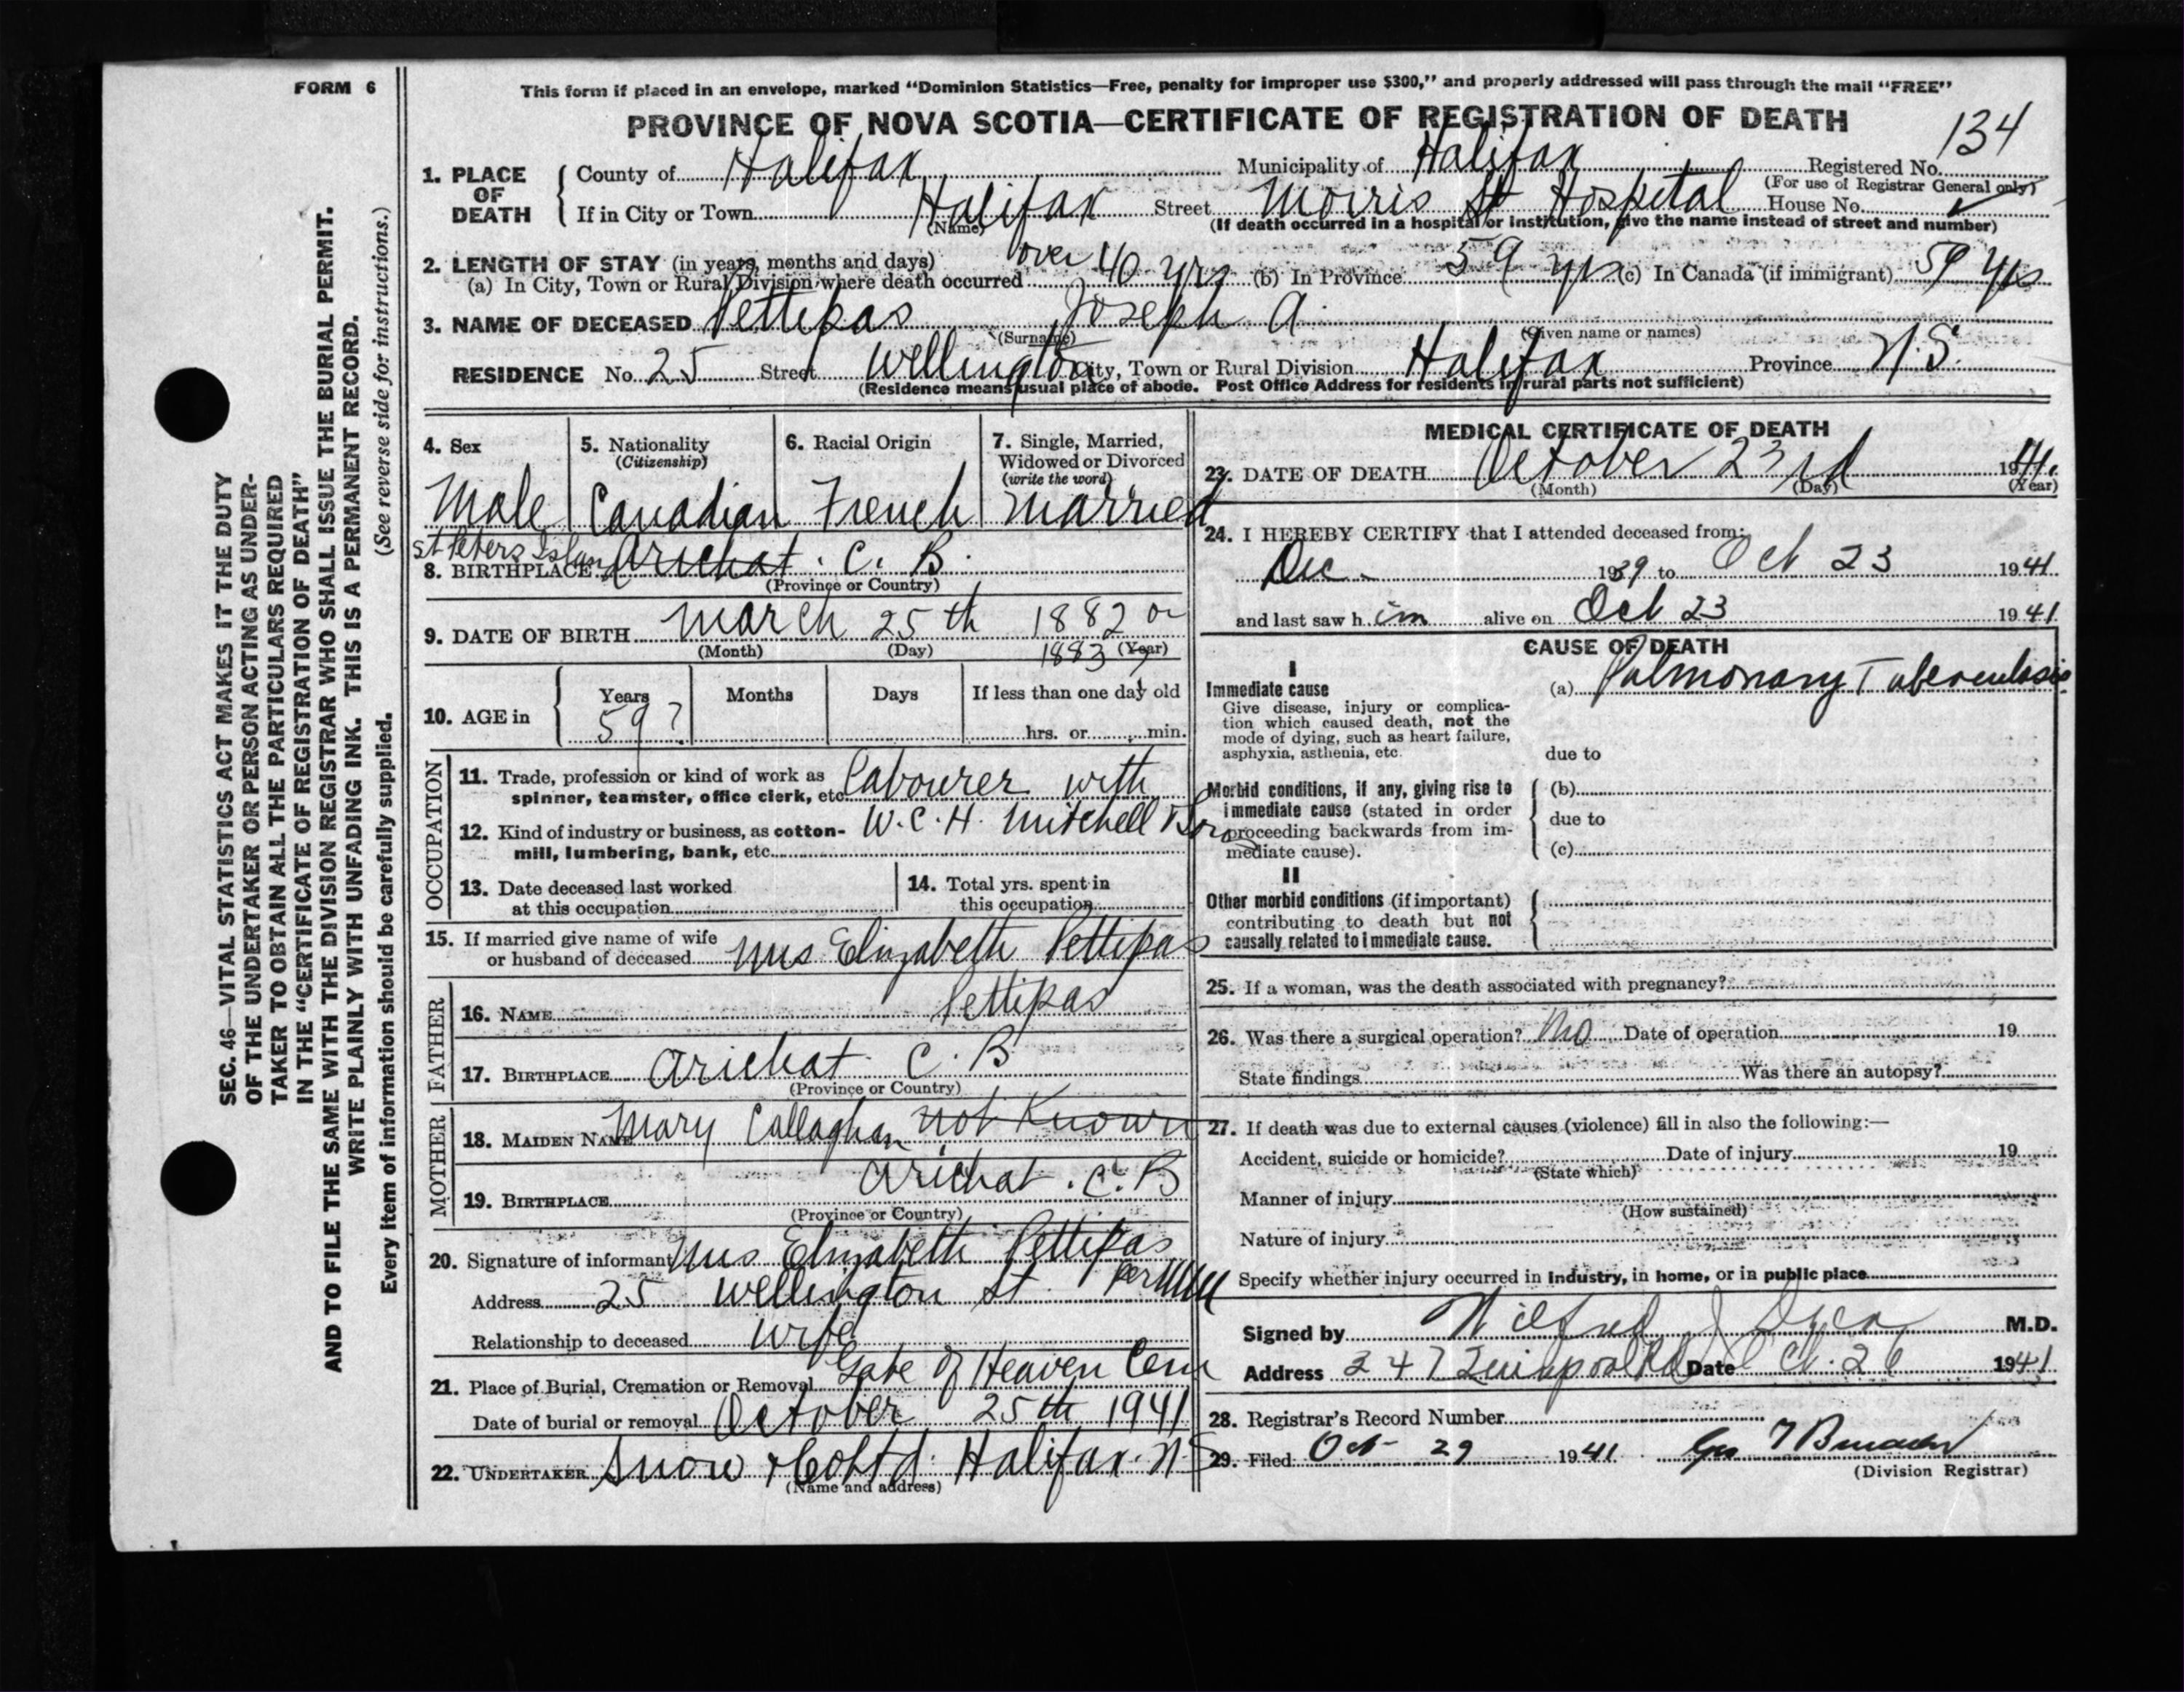 FORM 6
This form if placed in an envelope, marked "Dominion Statistics—Free, penalty for improper use $300," and properly addressed will pass through the mail "FREE"
PROVINCE OF NOVA SCOTIA—CERTIFICATE OF REGISTRATION OF DEATH
134
1. PLACE OF DEATH { County of Halifax Municipality of Halifax Registered No.
(For use of Registrar General only)
If in City or Town Halifax Street Morris St Hospital House No.
(Name) (If death occurred in a hospital or institution, give the name instead of street and number)
2. LENGTH OF STAY (in years, months and days)
(a) In City, Town or Rural Division where death occurred over 40 yrs (b) In Province 59 yrs (c) In Canada (if immigrant) 59 yrs
3. NAME OF DECEASED Pettipas Joseph A.
(Surname) (Given name or names)
RESIDENCE No. 25 Street Wellington City, Town or Rural Division Halifax Province N.S.
(Residence means usual place of abode. Post Office Address for residents in rural parts not sufficient)
4. Sex Male
5. Nationality (Citizenship) Canadian
6. Racial Origin French
7. Single, Married, Widowed or Divorced (write the word) Married
St Peters Island
8. BIRTHPLACE Arichat. C. B.
(Province or Country)
9. DATE OF BIRTH March 25th 1882 or
1883?
(Month) (Day) (Year)
10. AGE in { Years 59? Months Days If less than one day old
hrs. or min.
OCCUPATION
11. Trade, profession or kind of work as spinner, teamster, office clerk, etc. Labourer with
12. Kind of industry or business, as cotton-mill, lumbering, bank, etc. W.C.H. Mitchell Bros
13. Date deceased last worked at this occupation
14. Total yrs. spent in this occupation
15. If married give name of wife or husband of deceased Mrs Elizabeth Pettipas
FATHER
16. NAME Pettipas
17. BIRTHPLACE Arichat C. B
(Province or Country)
MOTHER
18. MAIDEN NAME Mary Callaghan not Known
19. BIRTHPLACE Arichat. C. B
(Province or Country)
20. Signature of informant Mrs Elizabeth Pettipas
Address 25 Wellington St. per
Relationship to deceased wife
21. Place of Burial, Cremation or Removal Gate of Heaven Cem
Date of burial or removal October 25th 1941
22. UNDERTAKER Snow & Co Ltd. Halifax. N.S
(Name and address)
MEDICAL CERTIFICATE OF DEATH
23. DATE OF DEATH October 23rd 1941.
(Month) (Day) (Year)
24. I HEREBY CERTIFY that I attended deceased from:
Dec. 1939 to Oct 23 1941
and last saw him alive on Oct 23 1941
CAUSE OF DEATH
I
Immediate cause (a) Pulmonary Tuberculosis
Give disease, injury or complication which caused death, not the mode of dying, such as heart failure, asphyxia, asthenia, etc. due to
Morbid conditions, if any, giving rise to immediate cause (stated in order proceeding backwards from immediate cause). { (b)
due to
(c)
II
Other morbid conditions (if important) contributing to death but not causally related to immediate cause.
25. If a woman, was the death associated with pregnancy?
26. Was there a surgical operation? No Date of operation 19
State findings Was there an autopsy?
27. If death was due to external causes (violence) fill in also the following:—
Accident, suicide or homicide? Date of injury 19
(State which)
Manner of injury
(How sustained)
Nature of injury
Specify whether injury occurred in industry, in home, or in public place
Signed by Wilfred J M.D.
Address 247 Quinpool Rd Date Oct. 26 1941
28. Registrar's Record Number
29. Filed Oct- 29 1941 Geo
(Division Registrar)
SEC. 46—VITAL STATISTICS ACT MAKES IT THE DUTY
OF THE UNDERTAKER OR PERSON ACTING AS UNDER-
TAKER TO OBTAIN ALL THE PARTICULARS REQUIRED
IN THE "CERTIFICATE OF REGISTRATION OF DEATH"
AND TO FILE THE SAME WITH THE DIVISION REGISTRAR WHO SHALL ISSUE THE BURIAL PERMIT.
WRITE PLAINLY WITH UNFADING INK. THIS IS A PERMANENT RECORD.
Every item of information should be carefully supplied. (See reverse side for instructions.)